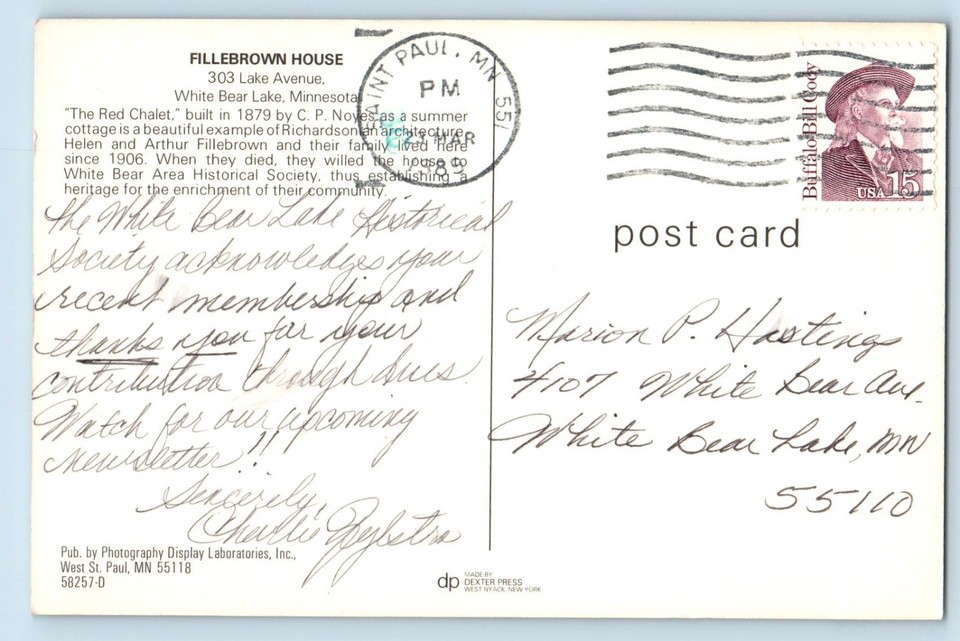 FILLEBROWN HOUSE
303 Lake Avenue,
White Bear Lake, Minnesota
"The Red Chalet," built in 1879 by C. P. Noyes as a summer
cottage is a beautiful example of Richardsonian architecture.
Helen and Arthur Fillebrown and their family lived here
since 1906. When they died, they willed the house to
White Bear Area Historical Society, thus establishing a
heritage for the enrichment of their community.
The White Bear Lake Historical
Society acknowledges your
recent membership and
thanks you for your
contribution through dues.
Watch for our upcoming
newsletter!!
Sincerely,
Charlie Zylstra
Pub. by Photography Display Laboratories, Inc.,
West St. Paul, MN 55118
58257-D
SAINT PAUL, MN 551
PM
23 MAR
1989
Buffalo Bill Cody
USA 15
post card
Marion P. Hastings
4107 White Bear Ave.
White Bear Lake, MN
55110
dp
MADE BY
DEXTER PRESS
WEST NYACK, NEW YORK